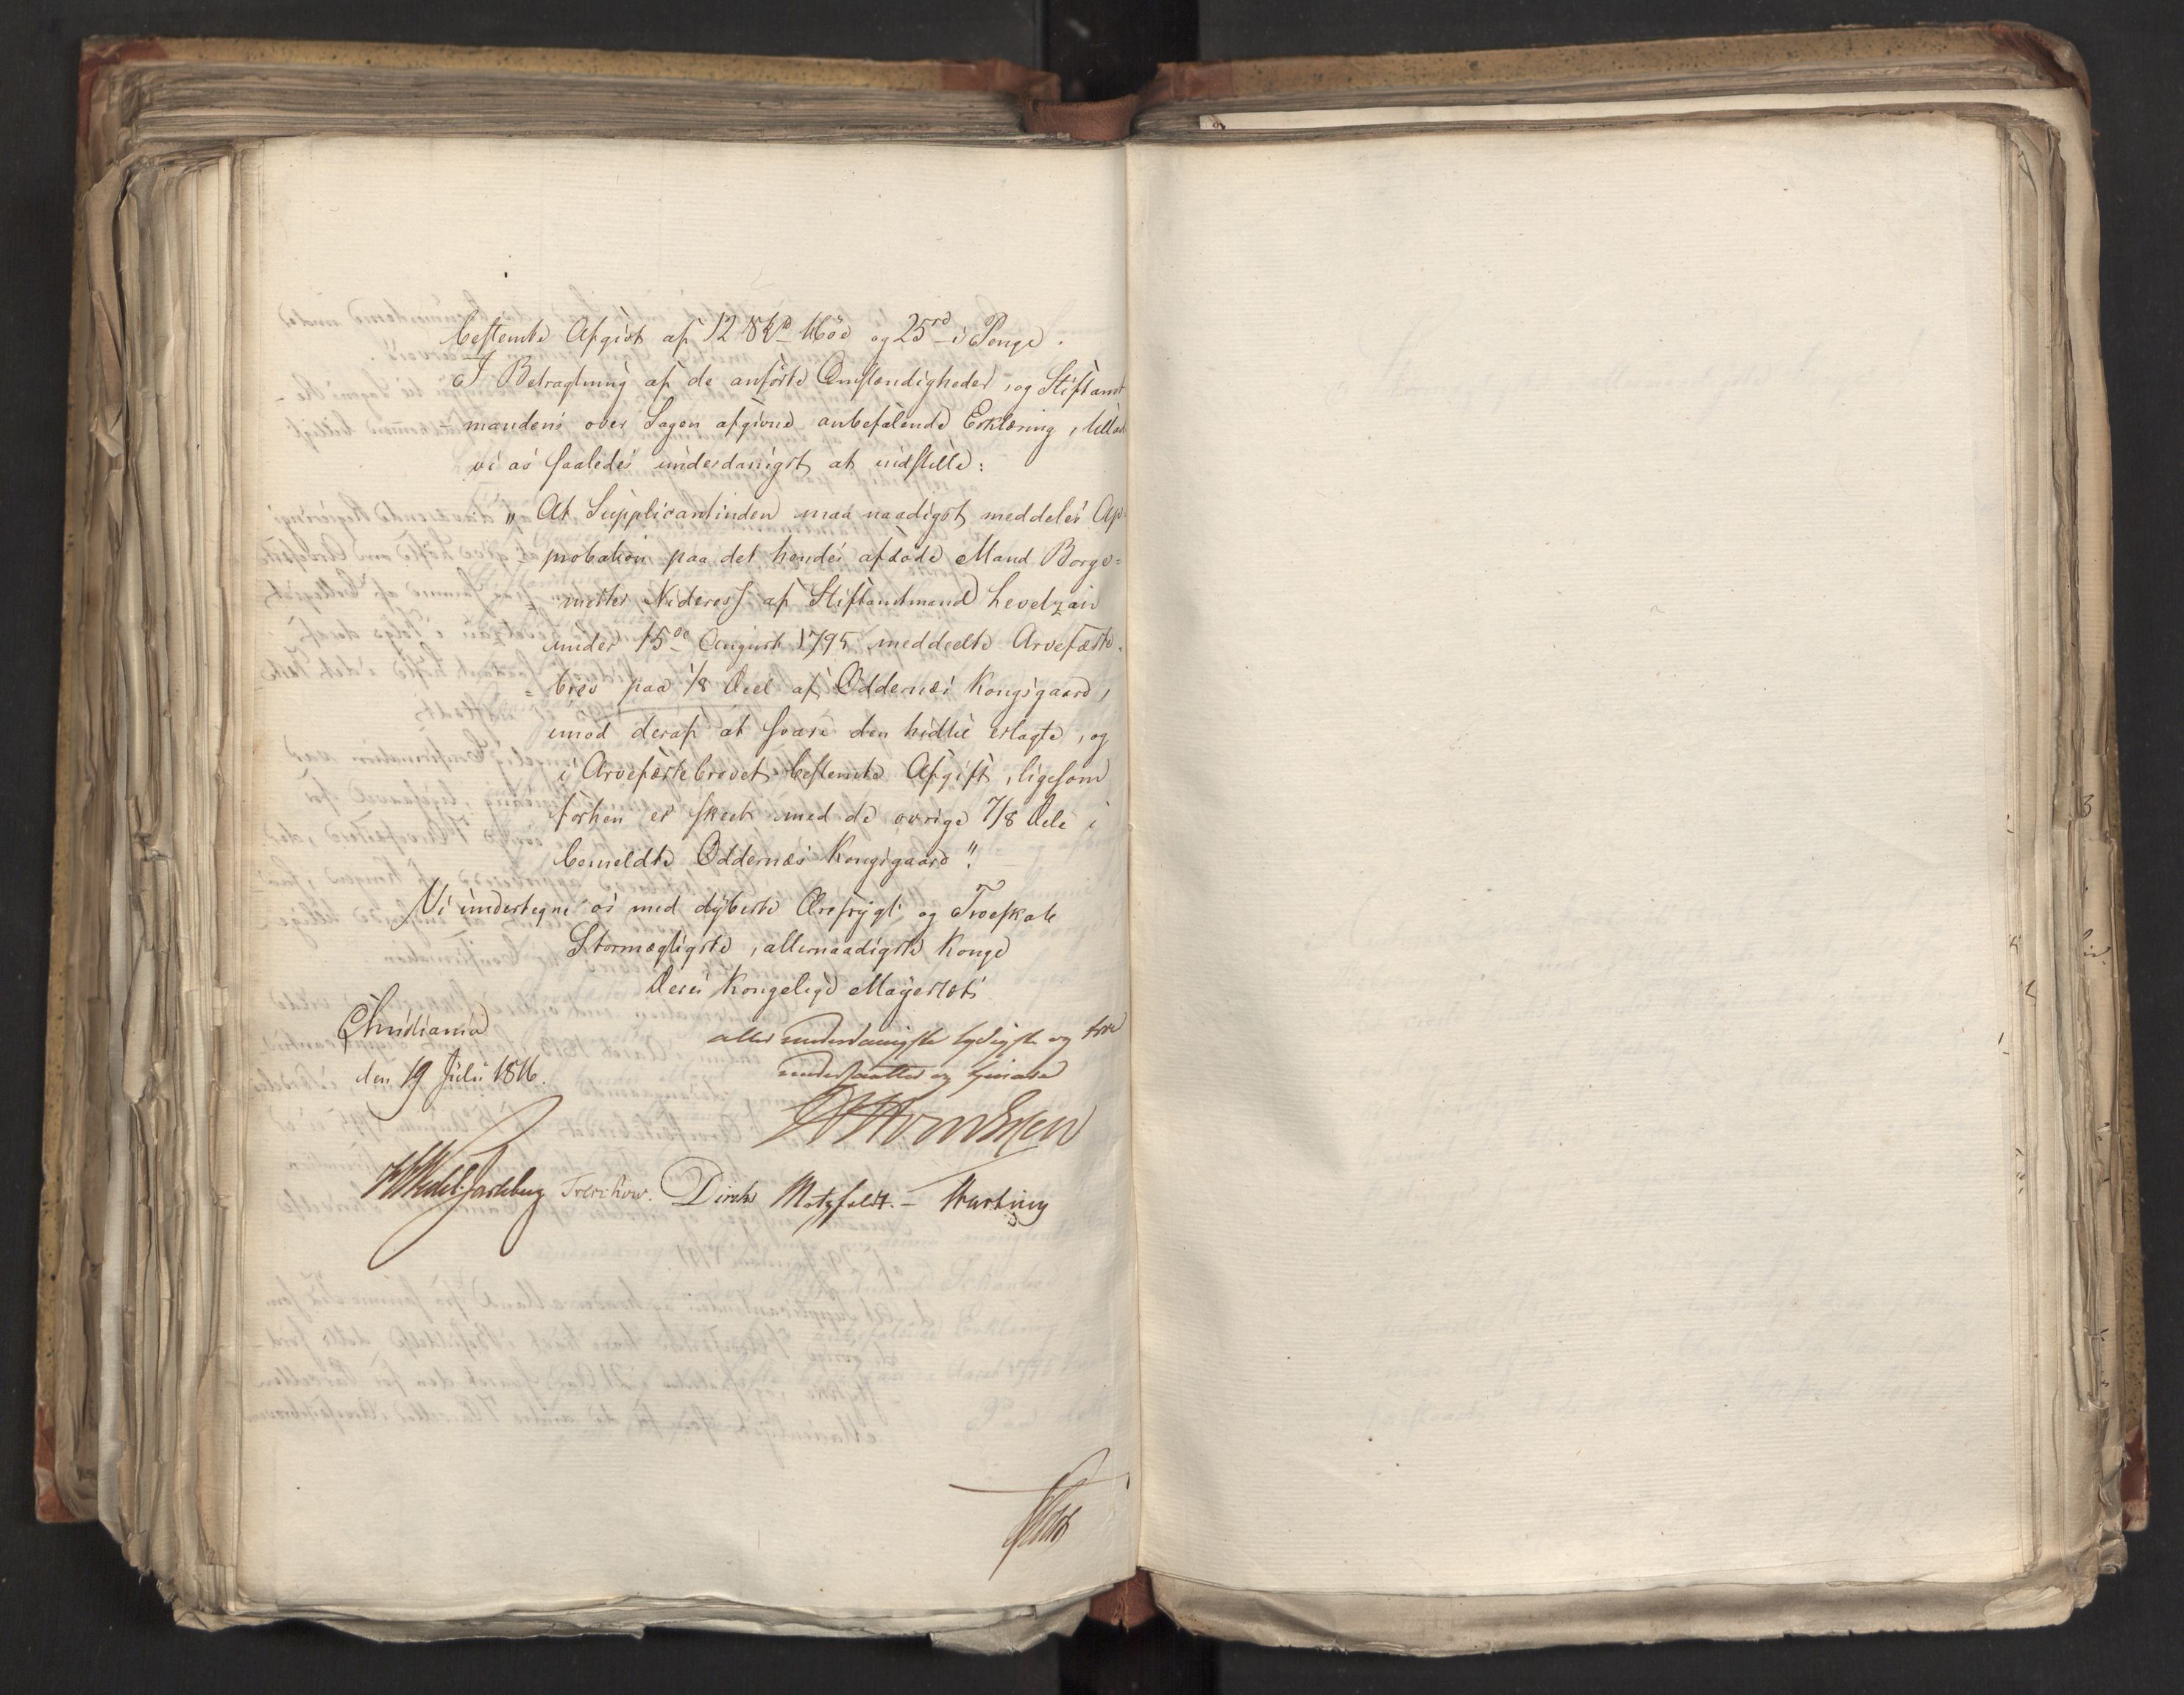 bestemte Afgivt af 12 Skpd Høe og 25 rd i Penge.
I Betragtning af de anførte Omstændigheder, og Stiftamt
-mandens over Sagen afgivne anbefalende Erklæring, tillade
vi os saaledes underdanigst at indstille:
"At Supplicantinden maa naadigst meddeles Ap-
-probation paa det hendes afdøde Mand Borge-
-mester Nideros af Stiftamtmand Levetzau
under 15de August 1795 meddeelte Arvefæste-
-brev paa 1/8 Deel af Oddernæs Kongsgaard,
imod deraf at svare den hidtil erlagte, og
i Arvefæstebrevet bestemte Afgift, ligesom
forhen er skeet med de øvrige 7/8 Dele i
bemeldte Oddernæs Kongsgaard".
Vi undertegne os med dybeste Ærefrygt og Troeskab
Stormægtigste, allernaadigste Konge
Deres Kongelige Majestæts
Christiania
den 19 Juli 1816.
allerunderdanigste lydigste og troe
undersaatter og tjenere
Wedel Jarlsberg Treschow. Diriks Motzfeldt. - Krebs